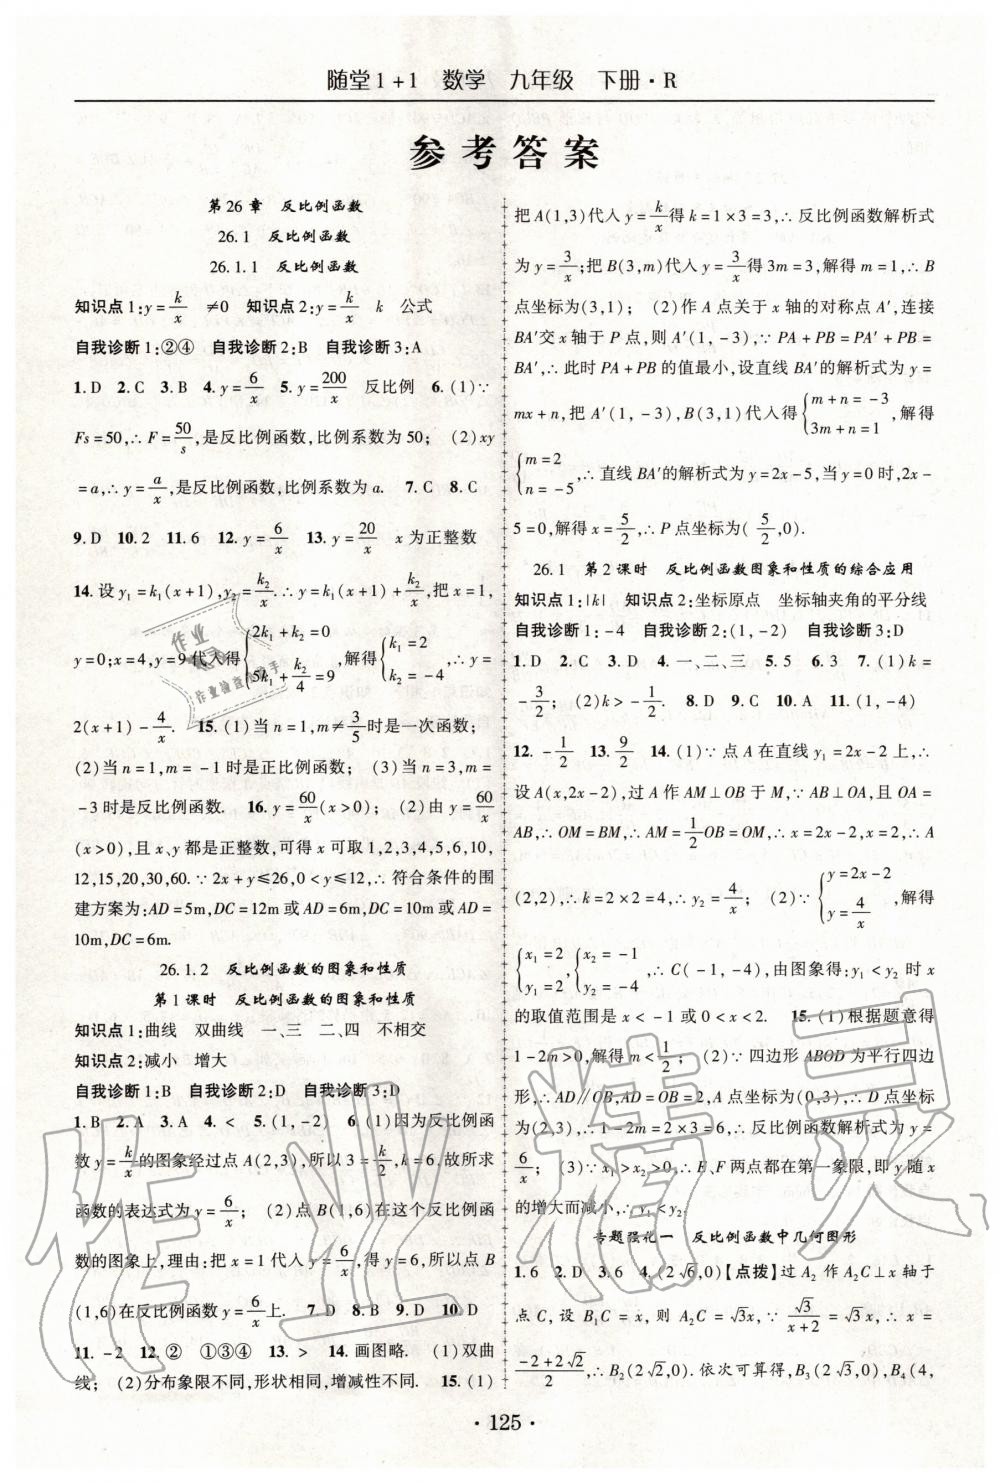 随堂1+1 数学 九年级 下册·R
参考答案
第26章 反比例函数
26.1 反比例函数
26.1.1 反比例函数
知识点1:y=k/x ≠0 知识点2:y=k/x k 公式
自我诊断1:②④ 自我诊断2:B 自我诊断3:A
1.D 2.C 3.B 4.y=6/x 5.y=200/x 反比例 6.(1)∵
Fs=50,∴F=50/s,是反比例函数,比例系数为50; (2)xy
=a,∴y=a/x,是反比例函数,比例系数为a. 7.C 8.C
9.D 10.2 11.6 12.y=6/x 13.y=20/x x为正整数
14.设y₁=k₁(x+1),y₂=k₂/x.∴y=k₁(x+1)+k₂/x,把x=1,
y=0;x=4,y=9代入得{2k₁+k₂=0 5k₁+k₂/4=9,解得{k₁=2 k₂=-4,∴y=
2(x+1)-4/x. 15.(1)当n=1,m≠3/5时是一次函数;
(2)当n=1,m=-1时是正比例函数; (3)当n=3,m=
-3时是反比例函数. 16.y=60/x(x>0); (2)由y=60/x
(x>0),且x、y都是正整数,可得x可取1,2,3,4,5,6,10,
12,15,20,30,60.∵2x+y≤26,0<y≤12,∴符合条件的围
建方案为:AD=5m,DC=12m或AD=6m,DC=10m或AD=
10m,DC=6m.
26.1.2 反比例函数的图象和性质
第1课时 反比例函数的图象和性质
知识点1:曲线 双曲线 一、三 二、四 不相交
知识点2:减小 增大
自我诊断1:B 自我诊断2:D 自我诊断3:D
1.B 2.A 3.A 4.< 5.(1,-2) 6.(1)因为反比例函
数y=k/x的图象经过点A(2,3),所以3=k/2,k=6,故所求
函数的表达式为y=6/x; (2)点B(1,6)在这个反比例函
数的图象上,理由:把x=1代入y=6/x,得y=6,所以点B
(1,6)在反比例函数y=6/x上. 7.D 8.B 9.D 10.D
11.-2 12.② ①③④ 13.> 14.画图略. (1)双曲
线; (2)分布象限不同,形状相同,增减性不同. 15.(1)
把A(1,3)代入y=k/x得k=1×3=3,∴反比例函数解析式
为y=3/x;把B(3,m)代入y=3/x得3m=3,解得m=1,∴B
点坐标为(3,1); (2)作A点关于x轴的对称点A′,连接
BA′交x轴于P点,则A′(1,-3),∵PA+PB=PA′+PB=
BA′,∴此时PA+PB的值最小,设直线BA′的解析式为y=
mx+n,把A′(1,-3),B(3,1)代入得{m+n=-3 3m+n=1,解得
{m=2 n=-5,∴直线BA′的解析式为y=2x-5,当y=0时,2x-
5=0,解得x=5/2,∴P点坐标为(5/2,0).
26.1 第2课时 反比例函数图象和性质的综合应用
知识点1:|k| 知识点2:坐标原点 坐标轴夹角的平分线
自我诊断1:-4 自我诊断2:(1,-2) 自我诊断3:D
1.D 2.C 3.D 4.一、二、三 5.5 6.3 7.(1)k=
-3/2; (2)k>-1. 8.D 9.C 10.A 11.(1,-4)
12.-1/2 13.9/2 14.(1)∵点A在直线y₁=2x-2上,∴
设A(x,2x-2),过A作AM⊥OB于M,∵AB⊥OA,且OA=
AB,∴OM=BM,∴AM=1/2OB=OM,∴x=2x-2,x=2,∴A
(2,2),∴k=2×2=4,∴y₂=4/x; (2)∵{y=2x-2 y=4/x,∴
{x₁=2 y₁=2,{x₂=-1 y₂=-4,∴C(-1,-4),由图象得:y₁<y₂时x
的取值范围是x<-1或0<x<2. 15.(1)根据题意得
1-2m>0,解得m<1/2; (2)∵四边形ABOD为平行四边
形,∴AD∥OB,AD=OB=2,A点坐标为(0,3),∴D点坐标
为(2,3),∴1-2m=2×3=6,∴反比例函数解析式为y=
6/x; (3)∵x₁>x₂>0,∴E、F两点都在第一象限,即y随x
的增大而减小,∴y₁<y₂.
专题强化一 反比例函数中几何图形
1.6 2.D 3.6 4.(2√6,0)【点拨】过A₂作A₂C⊥x轴于
点C,设B₁C=x,则A₂C=√3x,∵√3/(x+2)=√3x,∴x=
(-2+2√2)/2,∴B₂(2√2,0).依次可算得,B₃(2√3,0),B₄(4,
·125·
作业
作业检查小助手
作业精灵